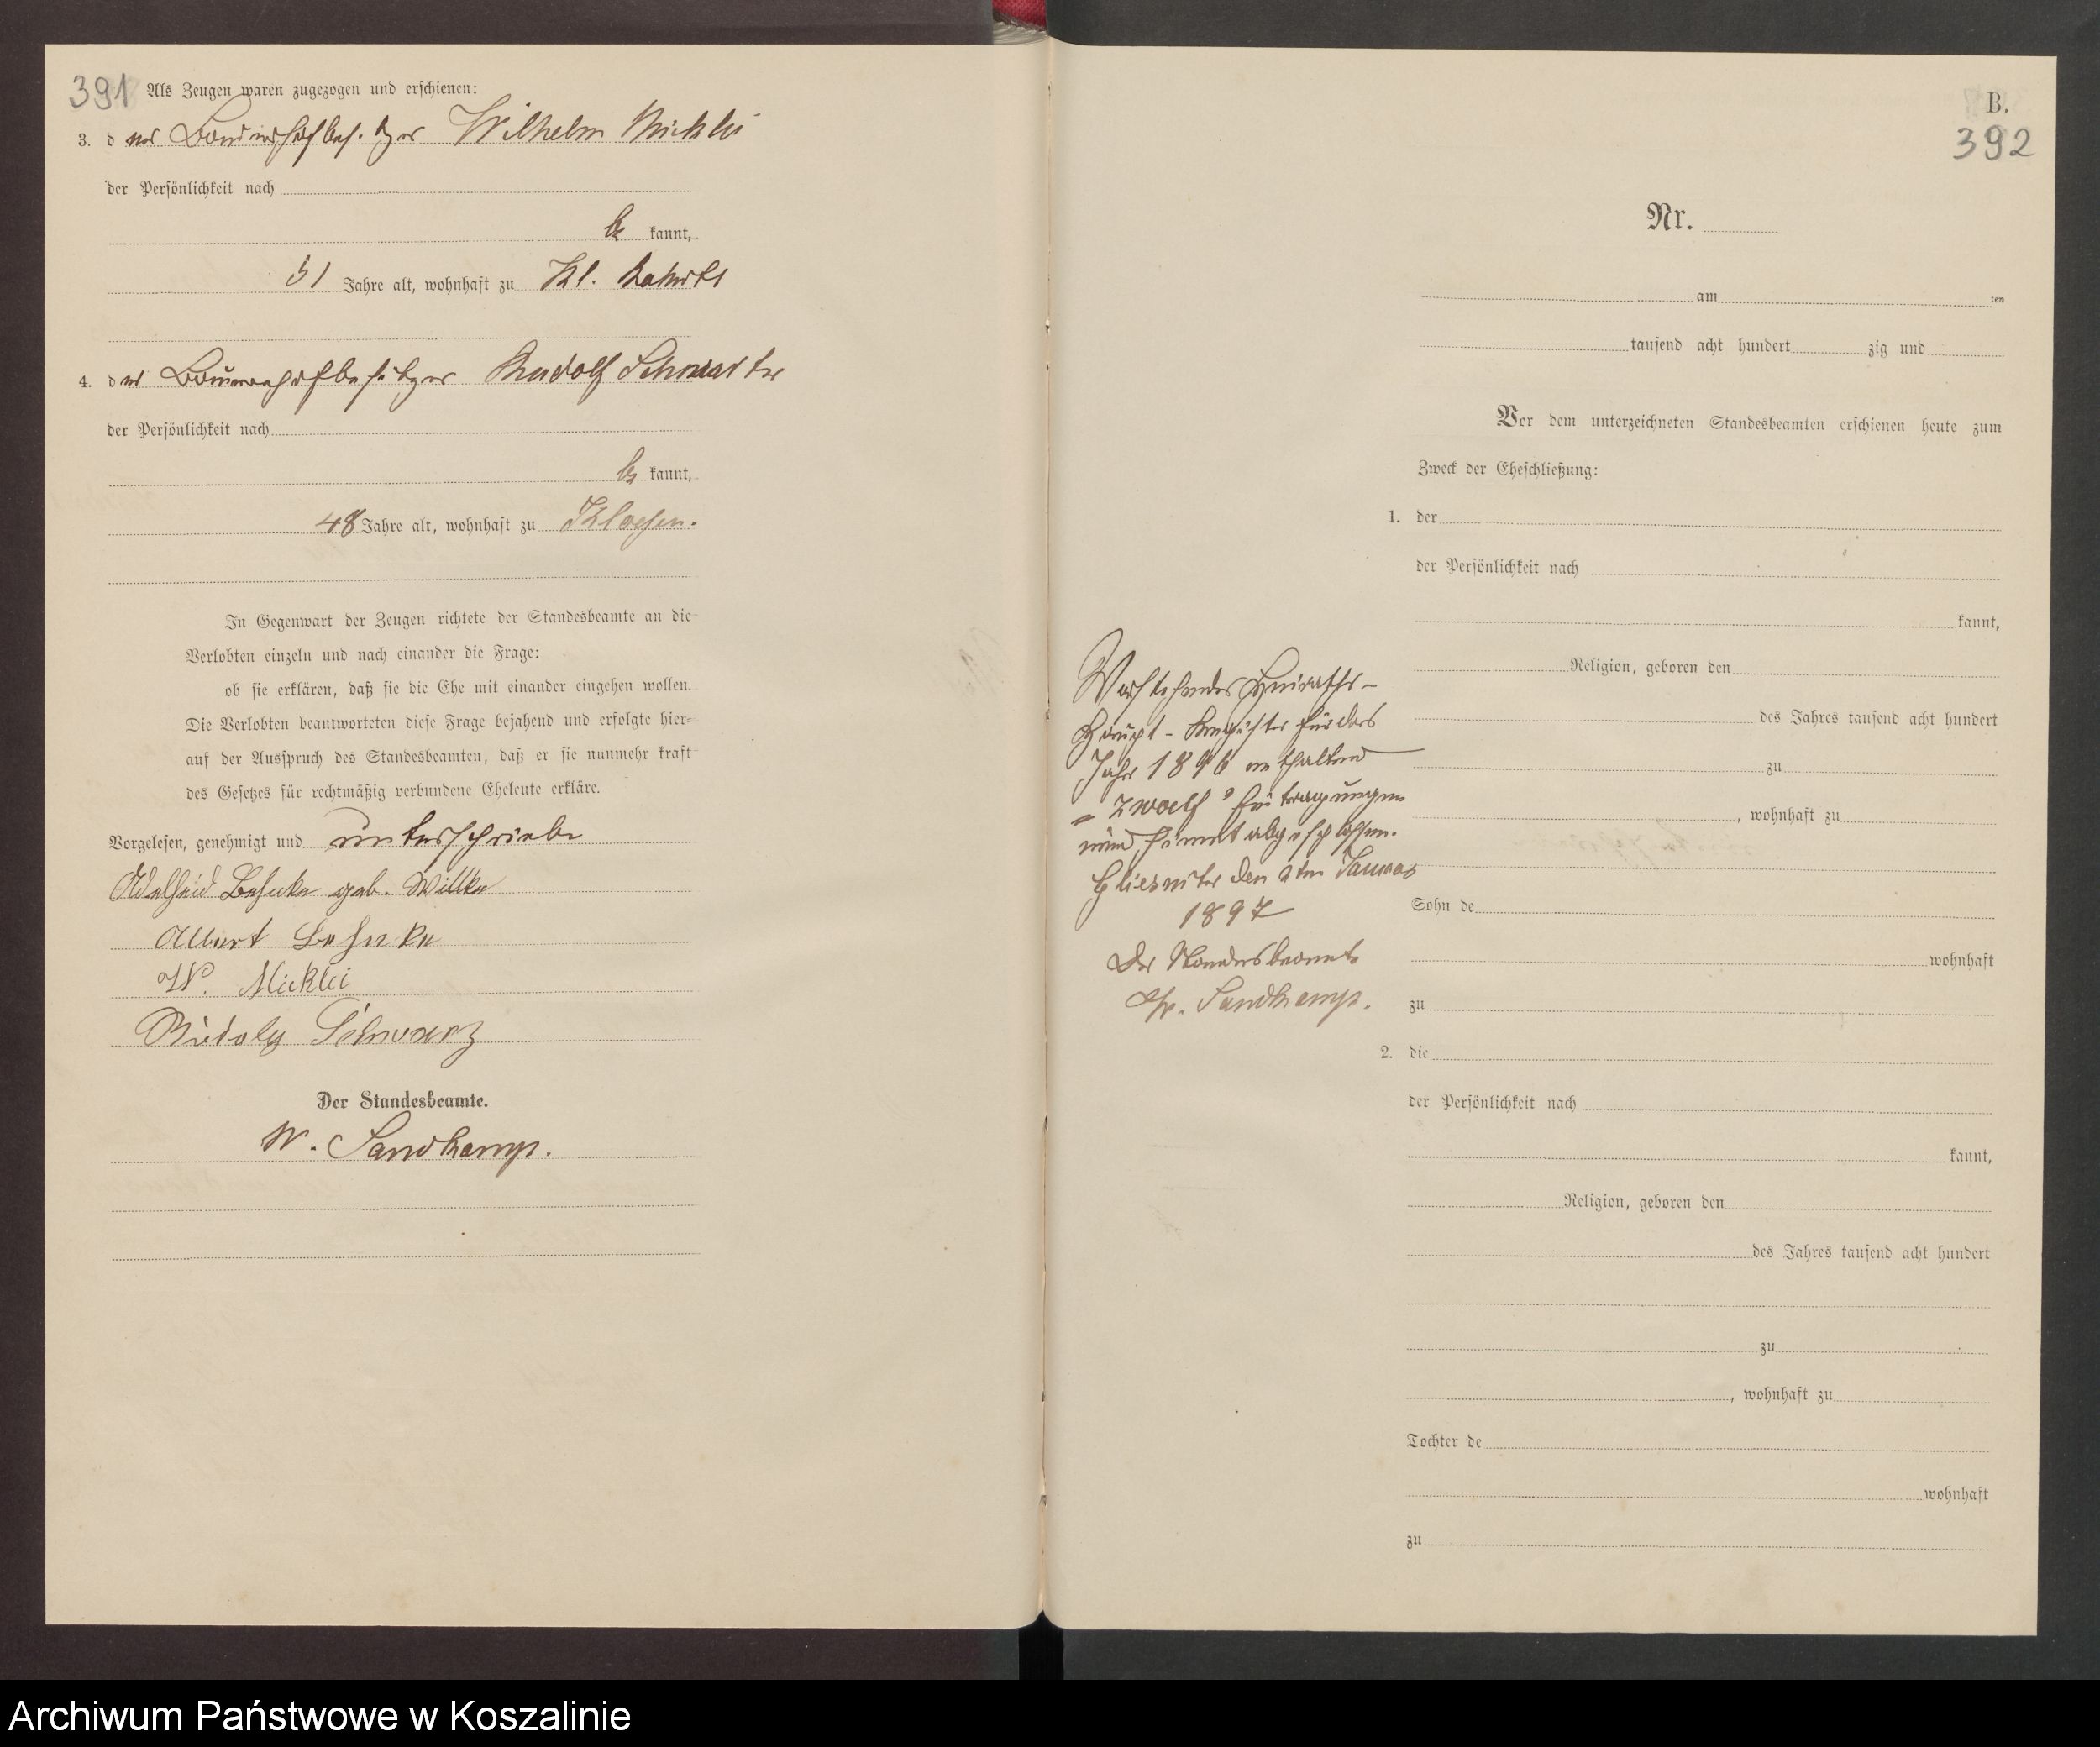 391
Als Zeugen waren zugezogen und erschienen:
3. der Bauernhofbesitzer Wilhelm Micklei
der Persönlichkeit nach
be kannt,
51 Jahre alt, wohnhaft zu Kl.
4. der Bauernhofbesitzer Rudolf
der Persönlichkeit nach
be kannt,
48 Jahre alt, wohnhaft zu
In Gegenwart der Zeugen richtete der Standesbeamte an die
Verlobten einzeln und nach einander die Frage:
ob sie erklären, daß sie die Ehe mit einander eingehen wollen.
Die Verlobten beantworteten diese Frage bejahend und erfolgte hier-
auf der Ausspruch des Standesbeamten, daß er sie nunmehr kraft
des Gesetzes für rechtmäßig verbundene Eheleute erkläre.
Vorgelesen, genehmigt und unterschriebe
Adelheid Behnke geb. Willke
Albert Behnke
W. Micklei
Rudolf
Der Standesbeamte.
W. Sandkamp.
B.
392
Nr.
am ten
tausend acht hundert zig und
Vor dem unterzeichneten Standesbeamten erschienen heute zum
Zweck der Eheschließung:
1. der
der Persönlichkeit nach
kannt,
Religion, geboren den
des Jahres tausend acht hundert
zu
, wohnhaft zu
Sohn de
wohnhaft
zu
2. die
der Persönlichkeit nach
kannt,
Religion, geboren den
des Jahres tausend acht hundert
zu
, wohnhaft zu
Tochter de
wohnhaft
zu
Vorstehendes Heiraths-
Haupt-Register für das
Jahr 1896 enthaltend
"zwoelf" Eintragungen
wird hiermit abgeschlossen.
den 2ten Januar
1897
Der Standesbeamte
Sandkamp.
Archiwum Państwowe w Koszalinie